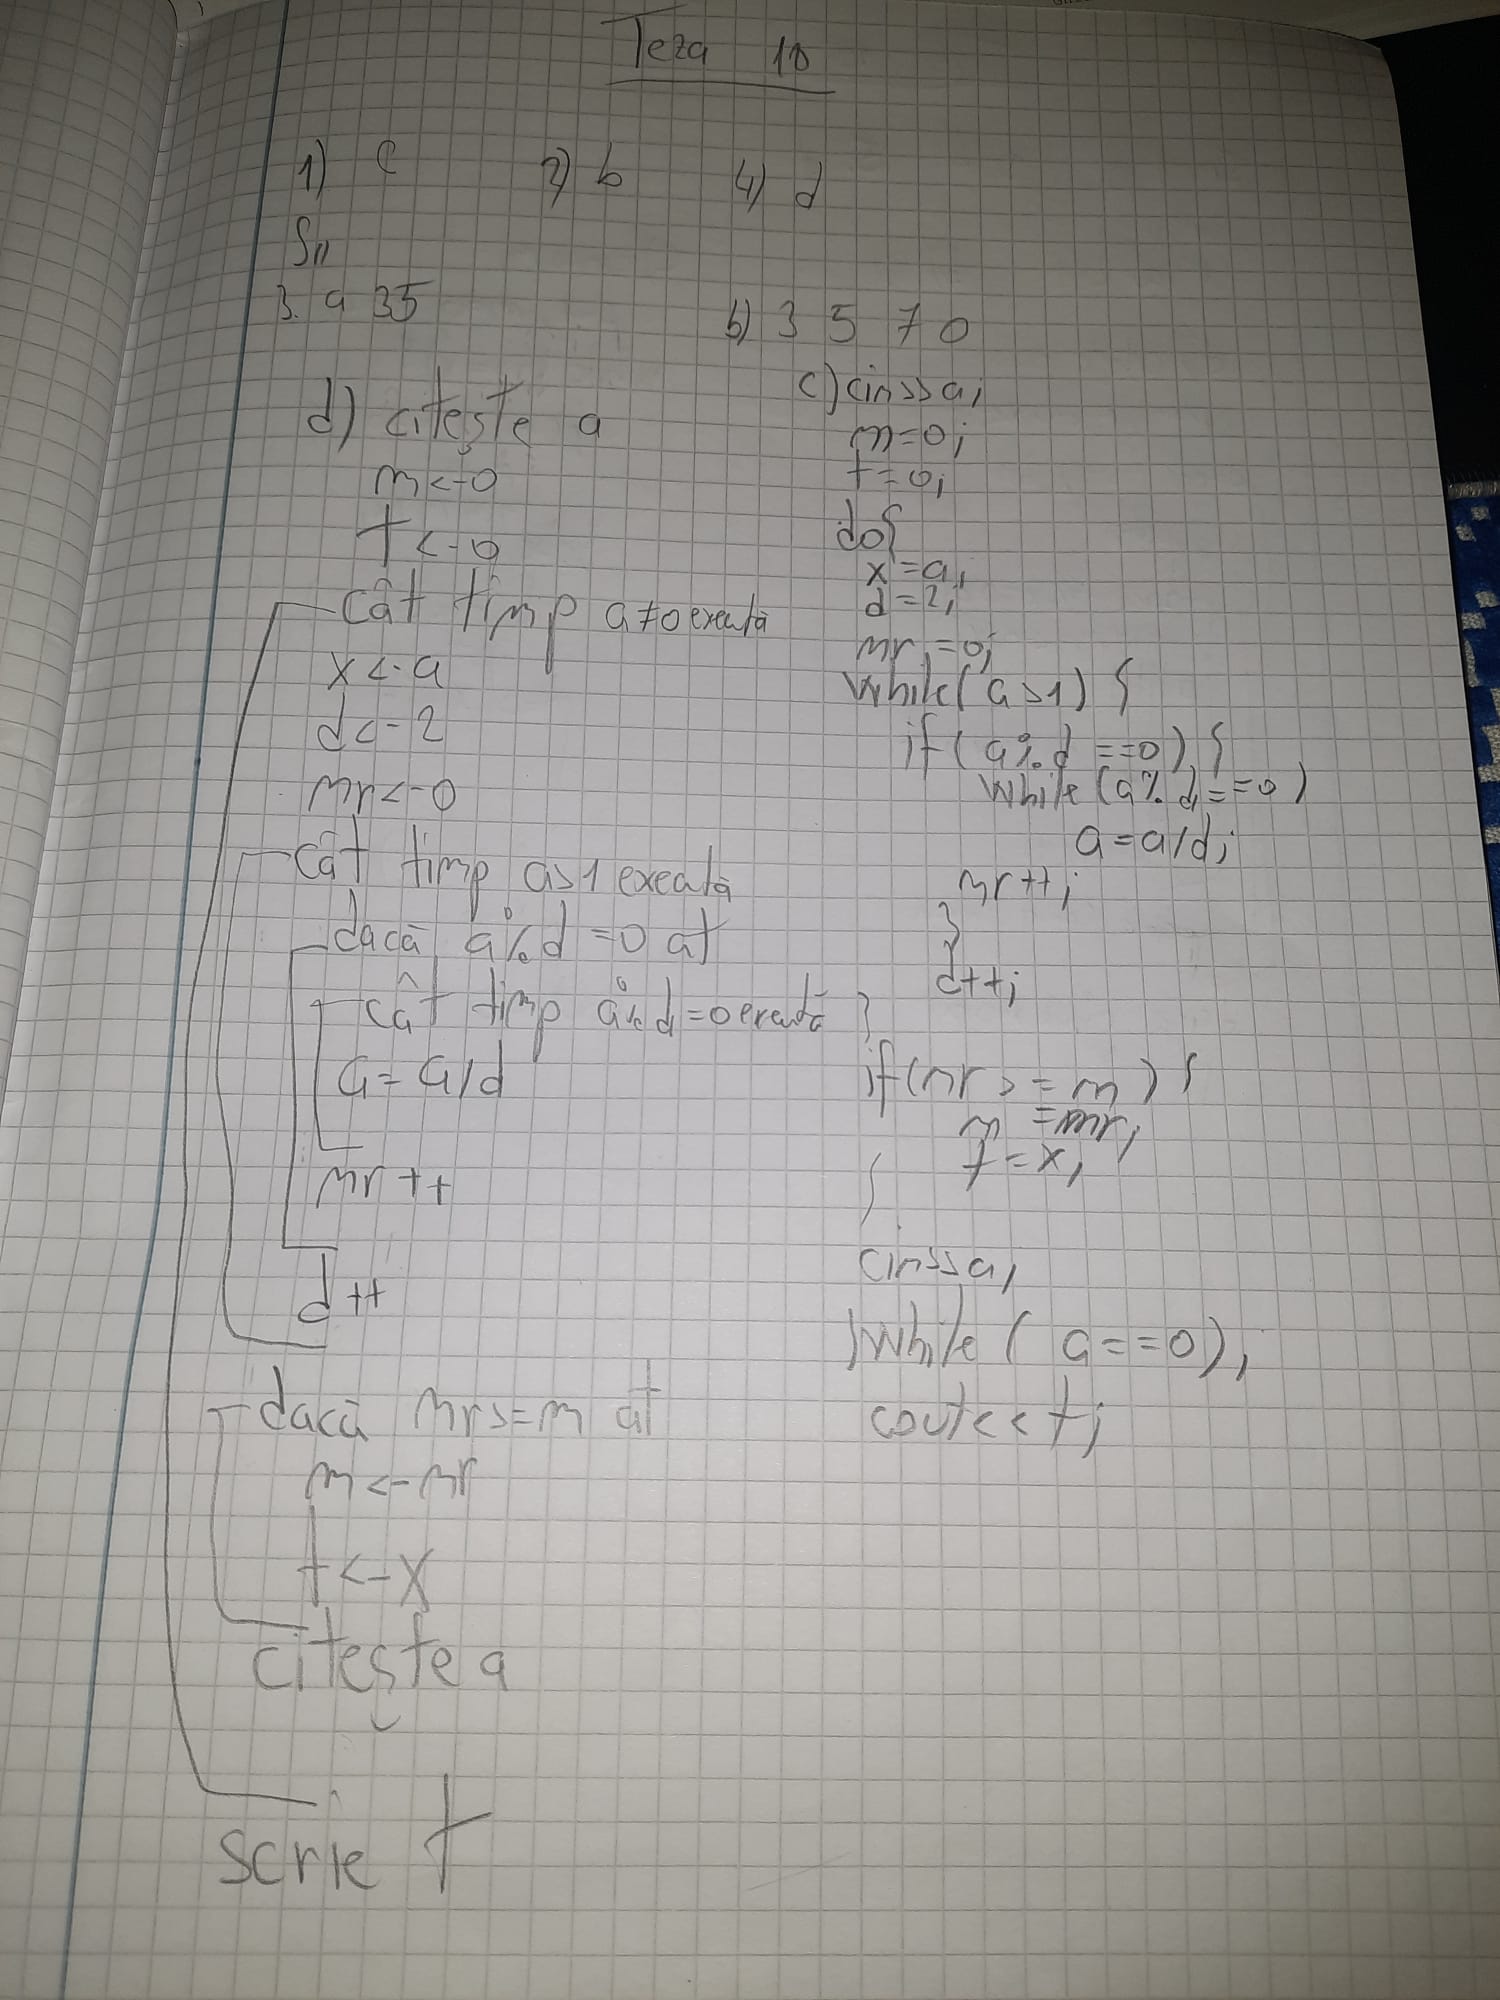 Teza 10
1) c 2) b 4) d
S11
3. a 35 b) 3 5 7 0
d) citește a
m<-0
t<-0
cât timp a≠0 execută
x<-a
d<-2
nr<-0
cât timp a>1 execută
dacă a%d=0 at
cât timp a%d=0 execută
a=a/d
nr++
d++
dacă nr>=m at
m<-nr
t<-x
citește a
scrie t
c) cin>>a;
m=0;
t=0;
do{
x=a;
d=2;
nr=0;
while(a>1) {
if(a%d==0) {
while(a%d==0)
a=a/d;
nr++;
}
d++;
}
if(nr>=m) {
m=nr;
t=x;
}
cin>>a;
}while( a==0);
cout<<t;